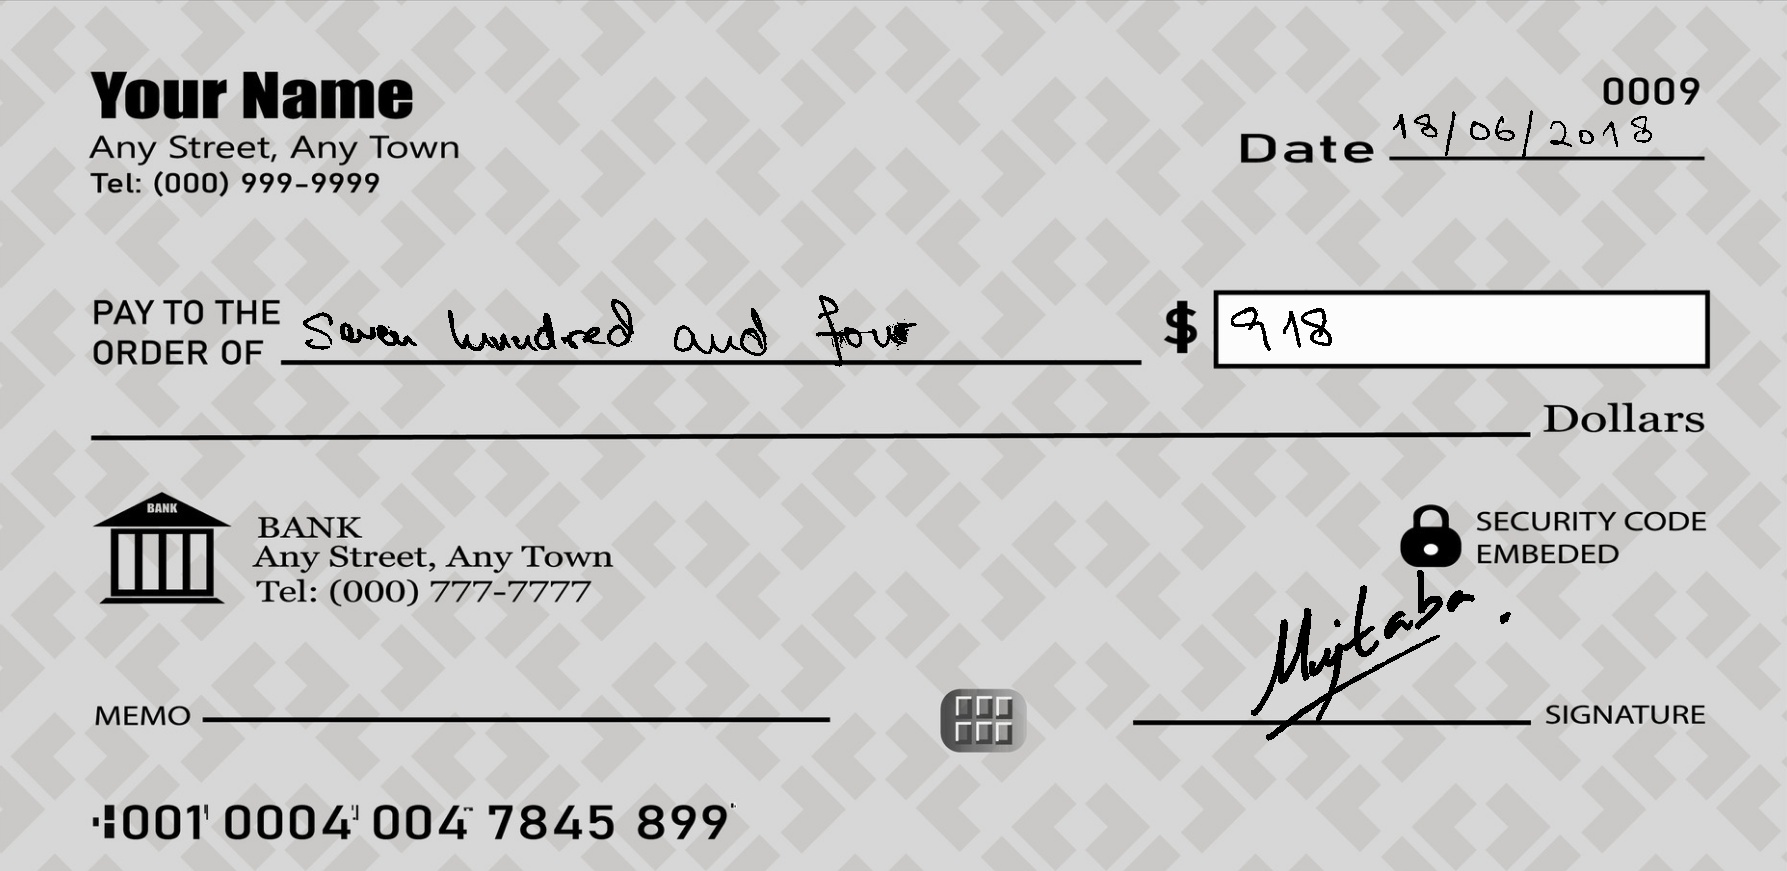 Your Name
Any Street, Any Town
Tel: (000) 999-9999
0009
Date 18/06/2018
PAY TO THE
ORDER OF Seven hundred and four $ 918
Dollars
BANK
BANK
Any Street, Any Town
Tel: (000) 777-7777
SECURITY CODE
EMBEDED
Mujtaba.
MEMO
SIGNATURE
001 0004 004 7845 899